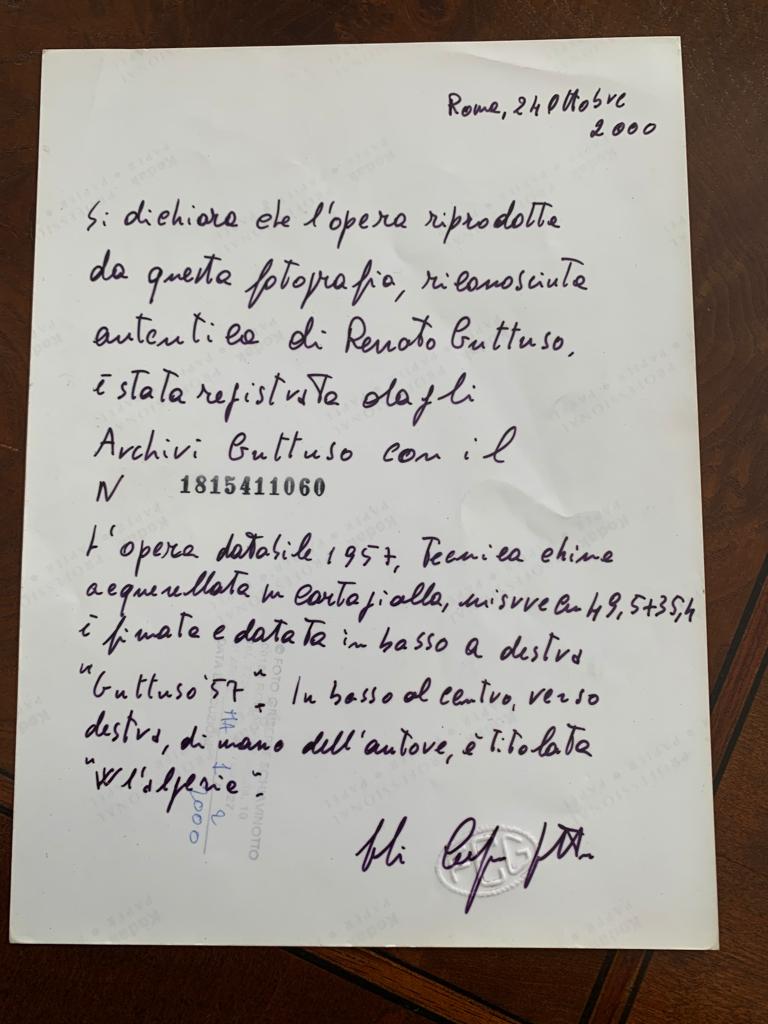 Roma, 24 Ottobre
2000
Si dichiara che l'opera riprodotta
da questa fotografia, riconosciuta
autentica di Renato Guttuso,
è stata registrata dagli
Archivi Guttuso con il
N 1815411060
L'opera databile 1957, Tecnica china
acquerellata su carta gialla, misure cm 49,5+35,4
è firmata e datata in basso a destra
"Guttuso '57". In basso al centro, verso
destra, di mano dell'autore, è titolata
"W l'Algerie".
FOTO
2000